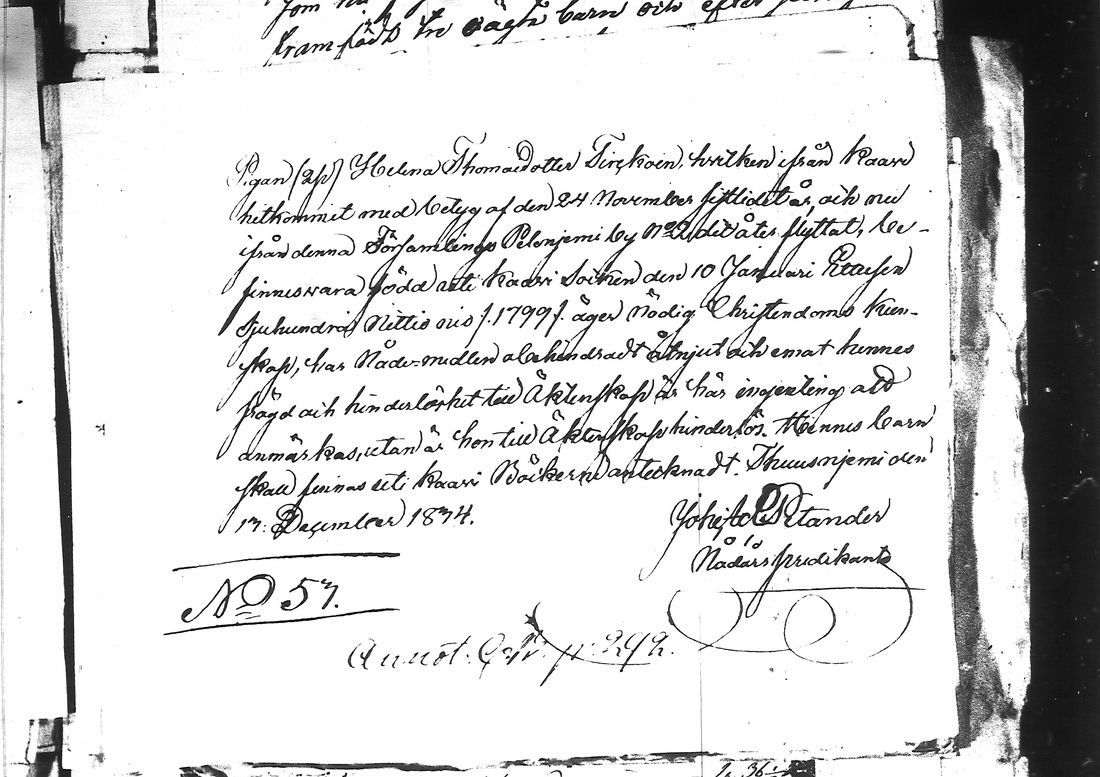 Som
framfödt tre oägta barn och efter
Pigan Helena Thomaedotter Tirckoin, hvilken ifrån Kaavi
hitkommit med betyg af den 24 November sistledit år, och nu
ifrån denna Församlings Pelonjemi by No 2 dit åter flyttat, be-
finnes vara född uti Kaavi Socken den 10 Januari Ettusen
Sjuhundra Nittio nio /.1799/. äger nödig Christendoms Kun-
skap, har Nåde-medlen obehindradt åtnjutit och emot hennes
frägd och hinderlöshet till Äktenskap är här ingenting att
anmärkas, utan är hon till Äktenskap hinderlös. Hennes barn
skall finnas uti Kaavi Böckern antecknadt. Thuusnjemi den
17 December 1834.
Petander
Nådårs predikant
No 57.
Annot. p. 292.